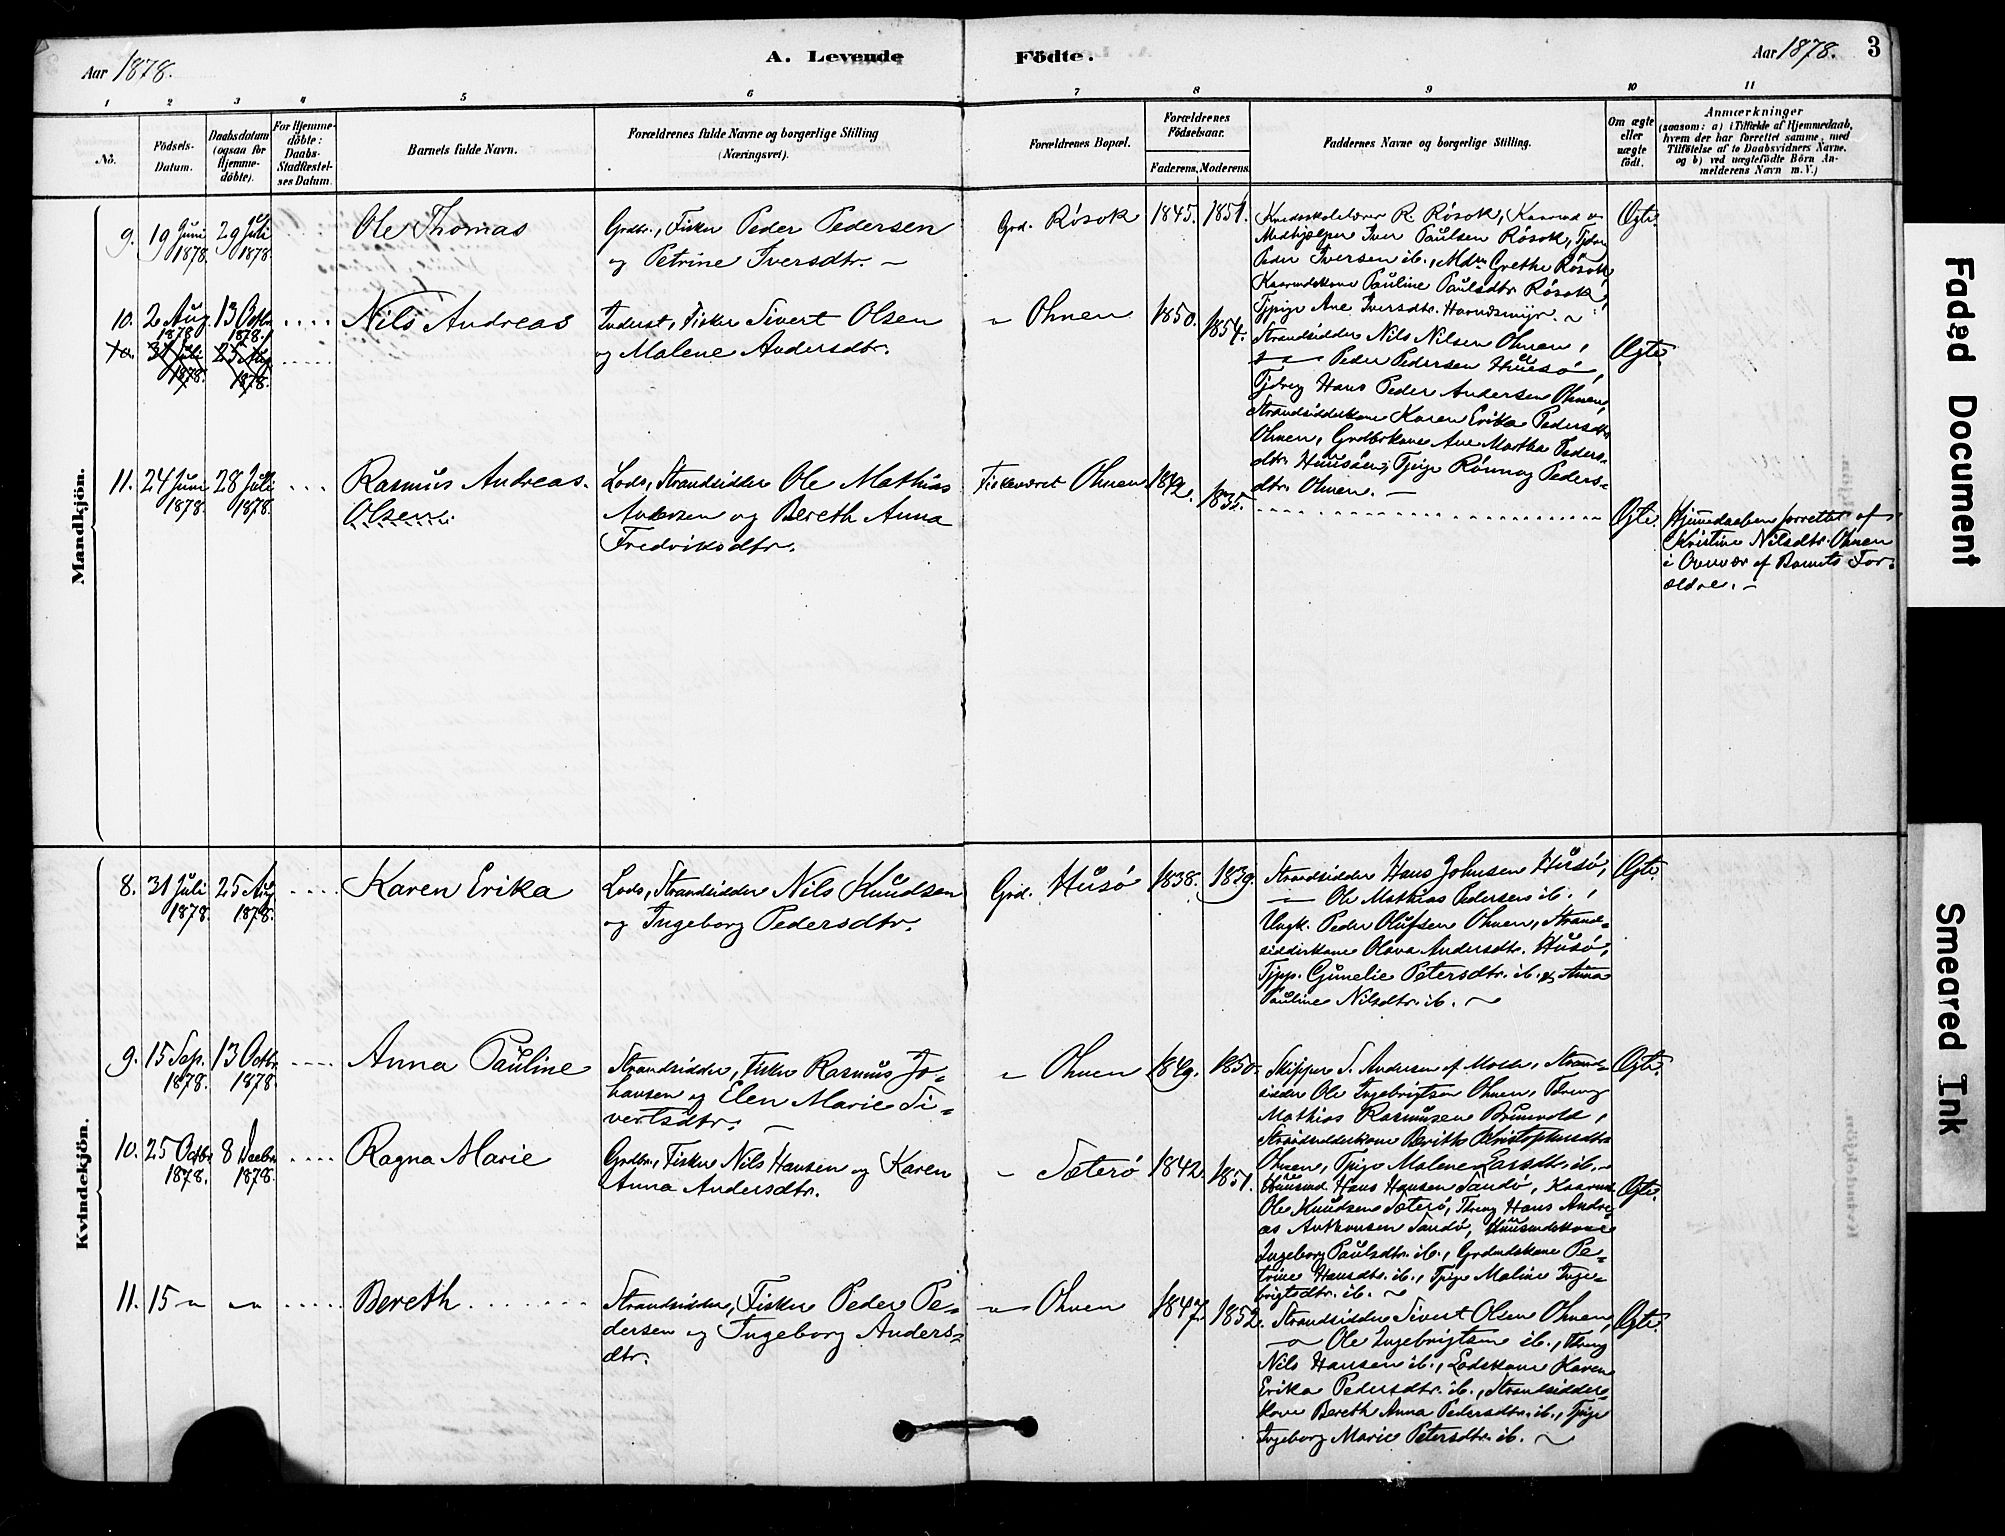 Aar 1878.
A. Levende Födte.
Aar 1878. 3
1 2 3 4 5 6 7 8 9 10 11
No.
Födsels-
Datum.
Daabsdatum
(ogsaa for
Hjemme-
döbte).
For Hjemme-
döbte:
Daabs-
Stadfæstel-
ses Datum.
Barnets fulde Navn.
Forældrenes fulde Navne og borgerlige Stilling
(Næringsvei).
Forældrenes Bopæl.
Forældrenes
Födselsaar.
Faderens. Moderens.
Faddernes Navne og borgerlige Stilling.
Om ægte
eller
uægte
födt.
Anmærkninger
(saasom: a) i Tilfælde af Hjemmedaab,
hvem der har forrettet samme, med
Tilföielse af to Daabsvidners Navne.
og b) ved uægtefödte Börn An-
melderens Navn m. V.)
Mandkjön.
9. 19 Juni
1878.
29 Juli
1878.
Ole Thomas
Grdbr., Fisker Peder Pedersen
og Petrine Iversdtr. —
Grd. Røsok 1845. 1851.
Kredsskolelærer R. Røsok, Kaarmd og
Medhjælper Iver Paulsen Røsok,
Peder Iversen ib., Mdm Grethe Røsok,
Kaarmdskone Pauline Paulsdtr. Røsok,
Tjpige Ane Iversdtr. Havndsmyr. ~
Ægte.
10. 2 Aug
1878.
13 Octbr
1878.
Nils Andreas
Inderst, Fisker Sivert Olsen
og Malene Andersdtr.
" Ohnen 1850. 1854.
10. 31 Juli
1878.
25 Aug
1878.
Strandsidder Nils Nilsen Ohnen,
— Peder Pedersen Huusø,
Tjdreng Hans Peder Andersen Ohnen,
Strandsidderkone Karen Erika Pedersdtr
Ohnen, Grdbrkone Ane Martha Peders-
dtr. Huusøen, Tjpige Rønnog Peders-
dtr. Ohnen. —
Ægte.
11. 24 Juni
1878.
28 Juli
1878.
Rasmus Andreas.
Olsen.
Lods, Strandsidder Ole Mathias
Andersen og Bereth Anna
Fredriksdtr.
Fiskeværet Ohnen 1842. 1835.
Ægte.
Hjemmedaaben forrettet af
Kristine Nilsdtr. Ohnen
i Overvær af Barnets For-
ældre. —
Kvindekjön.
8. 31 Juli
1878.
25 Aug
1878.
Karen Erika
Lods, Strandsidder Nils Knudsen
og Ingeborg Pedersdtr.
Grd. Husø 1838. 1839.
Strandsidder Hans Johnsen Husø,
— Ole Mathias Pedersen ib.,
Ungk. Peder Olufsen Ohnen, Strand-
sidderkone Olava Andersdtr. Husø,
Tjpp. Gunelie Petersdtr. ib. & Anna
Pauline Nilsdtr. ib. ~
Ægte.
9. 15 Sep.
1878.
13 Octbr
1878.
Anna Pauline
Strandsidder, Fisker Rasmus Jo-
hansen og Elen Marie Si-
vertsdtr. —
" Ohnen 1849. 1850.
Skipper S. Andersen af Molde, Strand-
sidder Ole Ingebrigtsen Ohnen, Tdreng
Mathias Rasmusen Brunvold,
Strandsidderkone Berithe Kristophersdtr
Ohnen, Tpige Malene Larsdtr. ib. ~
Ægte.
10. 25 Octbr
1878.
8 Decbr
1878.
Ragna Marie
Grdbr., Fisker Nils Hansen og Karen
Anna Andersdtr.
" Sæterø 1842. 1851.
Huusmd. Hans Hansen Sandø, Kaarmd
Ole Knudsen Sæterø, Tdreng Hans Andre-
as Anthonsen Sandø, Huusmdskone
Ingeborg Paulsdtr. ib., Grdmdskone Pe-
trine Hansdtr. ib., Tpige Maline Inge-
brigtsdtr. ib. ~
Ægte.
11. 15 " " "
Bereth
Strandsidder, Fisker Peder Pe-
dersen og Ingeborg Anders-
dtr.
" Ohnen 1847. 1852.
Strandsidder Sivert Olsen Ohnen,
— Ole Ingebrigtsen ib., Tdreng
Nils Hansen ib., Lodskone Karen
Erika Pedersdtr. ib., Strandsidder-
kone Bereth Anna Pedersdtr. ib., Tpige
Ingeborg Marie Petersdtr. ib. ~
Ægte.
Faded Document
Smeared Ink